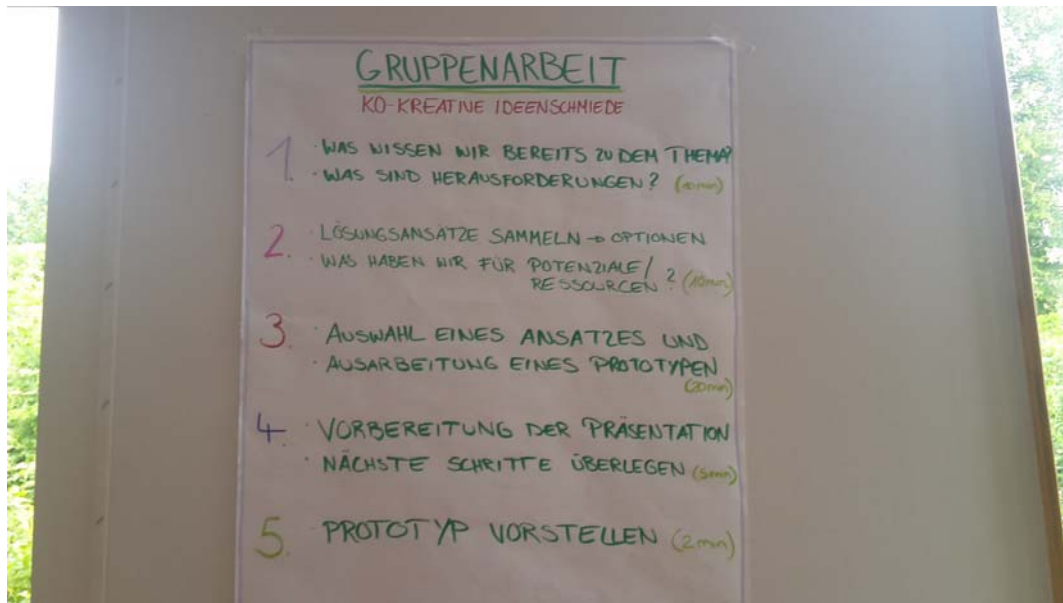 GRUPPENARBEIT
KO-KREATIVE IDEENSCHMIEDE
1. · WAS WISSEN WIR BEREITS ZU DEM THEMA?
· WAS SIND HERAUSFORDERUNGEN? (10min)
2. · LÖSUNGSANSÄTZE SAMMELN → OPTIONEN
· WAS HABEN WIR FÜR POTENZIALE/
RESSOURCEN? (10min)
3. · AUSWAHL EINES ANSATZES UND
· AUSARBEITUNG EINES PROTOTYPEN
(20min)
4. · VORBEREITUNG DER PRÄSENTATION
· NÄCHSTE SCHRITTE ÜBERLEGEN (5min)
5. · PROTOTYP VORSTELLEN (2min)